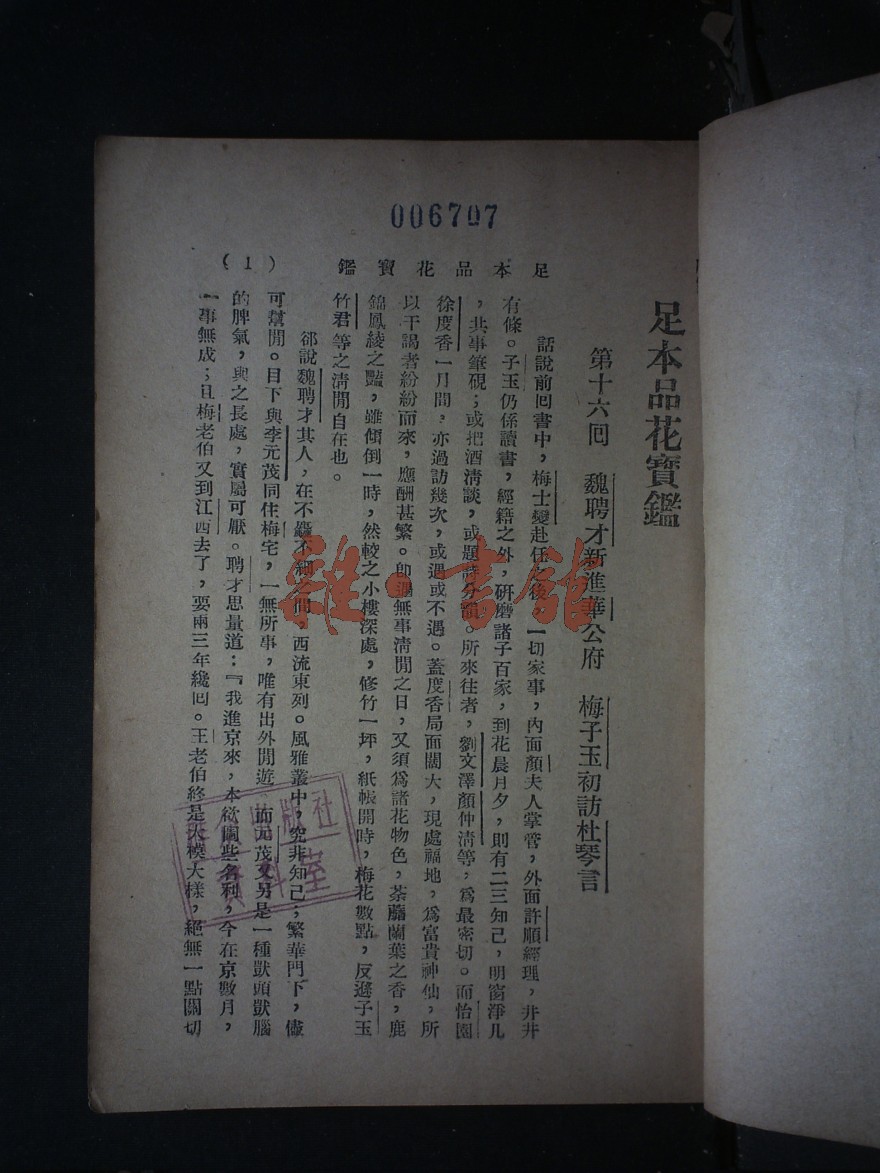 006707
足本品花寶鑑
(1)
足本品花寶鑑
第十六回　魏聘才新進華公府　梅子玉初訪杜琴言
話說前回書中，梅士燮赴任之後，一切家事，內面顏夫人掌管，外面許順經理，井井
有條。子玉仍係讀書，經籍之外，研磨諸子百家，到花晨月夕，則有二三知己，明窗淨几
，共事筆硯；或把酒清談，或題詩分韻。所來往者，劉文澤顏仲清等，爲最密切。而怡園
徐度香一月間，亦過訪幾次，或遇或不遇。蓋度香局面闊大，現處福地，爲富貴神仙，所
以干謁者紛紛而來，應酬甚繁。卽遇無事清閒之日，又須爲諸花物色，荼蘼蘭葉之香，鹿
錦鳳綾之豔，雖傾倒一時，然較之小樓深處，修竹一坪，紙帳開時，梅花數點，反遜子玉
竹君等之清閒自在也。
郤說魏聘才其人，在不粗不細之間，西流東列。風雅叢中，究非知己；繁華門下，儘
可幫閒。目下與李元茂同住梅宅，一無所事，唯有出外閒遊，而元茂又另是一種獃頭獃腦
的脾氣，與之長處，實屬可厭。聘才思量道：『我進京來，本欲圖些名利，今在京數月，
一事無成；且梅老伯又到江西去了，要兩三年纔回。王老伯終是大模大樣，絕無一點關切
雜·書館
版社
資料室